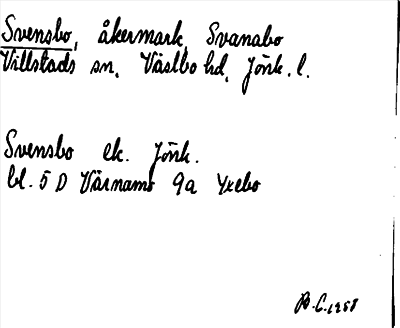 Svensbo, åkermark, Svanabo
Villstads sn, Västbo hd, Jönk. l.
Svensbo ek. Jönk.
bl. 5 D Värnamo 9a Yxebo
B.C. 1958